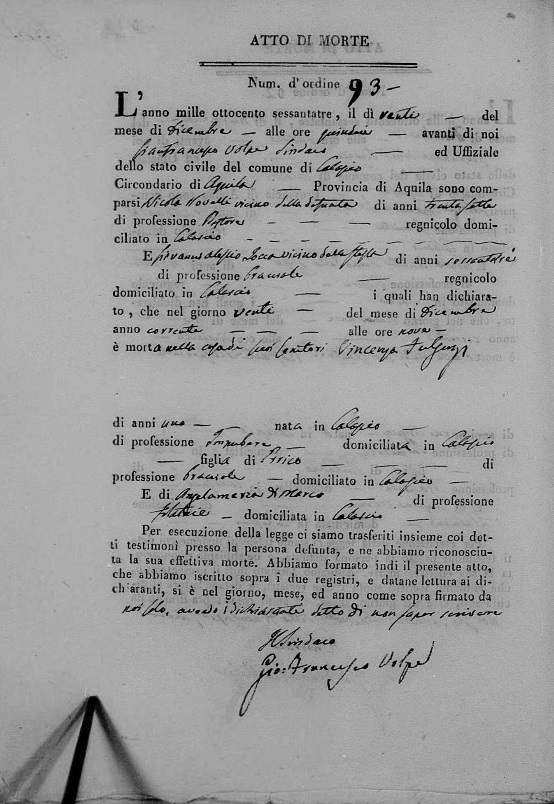 ATTO DI MORTE
Num. d'ordine 93 -
L'anno mille ottocento sessantatre, il dì venti — del
mese di Dicembre — alle ore quindici — avanti di noi
Gianfrancesco Volpe Sindaco — ed Uffiziale
dello stato civile del comune di Calascio —
Circondario di Aquila — Provincia di Aquila sono com-
parsi Nicola vicino della defunta di anni trentasette
di professione Pastore — regnicolo domi-
ciliato in Calascio
E Giovannalessio vicino della stessa di anni sessantatrè
di professione bracciale — regnicolo
domiciliato in Calascio — i quali han dichiara-
to, che nel giorno venti — del mese di Dicembre
anno corrente — alle ore nove —
è morta nella casa di suoi Genitori Vincenza Fulgenzi
di anni uno — nata in Calascio —
di professione Impubere — domiciliata in Calascio
— figlia di Pirico — di
professione bracciale — domiciliato in Calascio —
E di di Marco — di professione
filatrice — domiciliata in Calascio —
Per esecuzione della legge ci siamo trasferiti insieme coi det-
ti testimonî presso la persona defunta, e ne abbiamo riconosciu-
ta la sua effettiva morte. Abbiamo formato indi il presente atto,
che abbiamo iscritto sopra i due registri, e datane lettura ai di-
chiaranti, si è nel giorno, mese, ed anno come sopra firmato da
noi solo, avendo i dichiaranti detto di non saper scrivere
Il Sindaco
Gio: Francesco Volpe